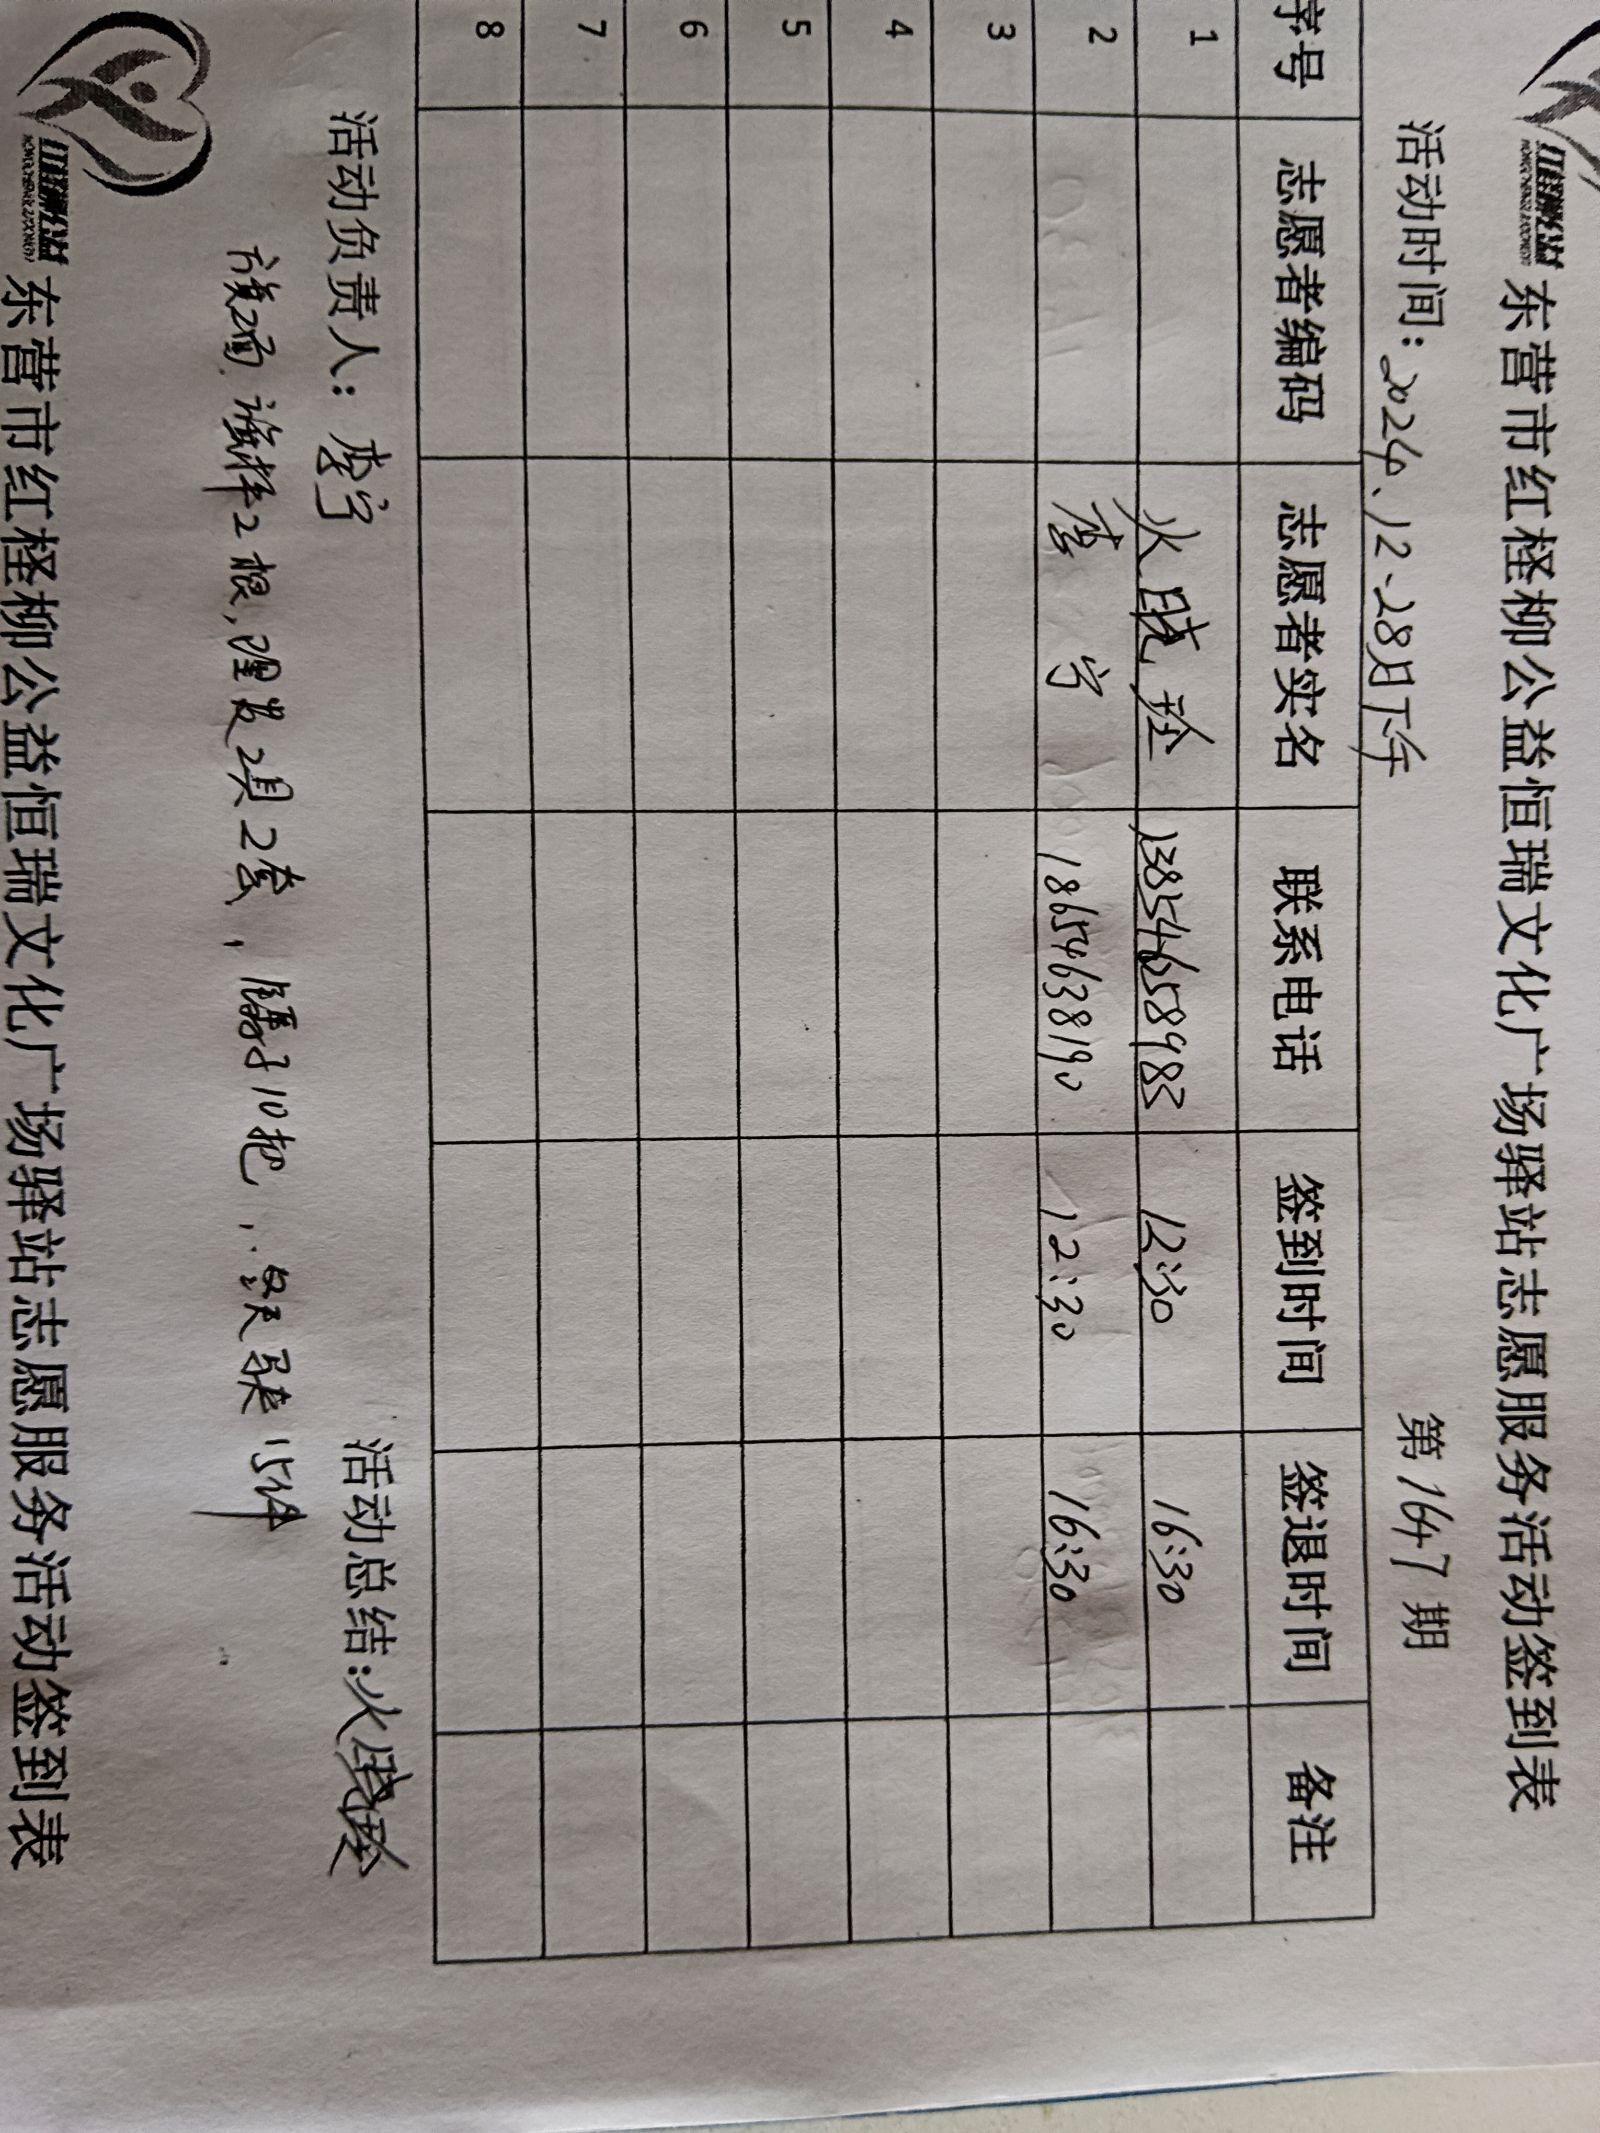 东营市红柽柳公益恒瑞文化广场驿站志愿服务活动签到表
活动时间：2024、12、28日下午 第1647期
序号 志愿者编码 志愿者实名 联系电话 签到时间 签退时间 备注
1 13854658983 12:30 16:30
2 18654638190 12:30 16:30
3
4
5
6
7
8
活动负责人： 活动总结：
2根，理发工具2套，10把，15件
东营市红柽柳公益恒瑞文化广场驿站志愿服务活动签到表